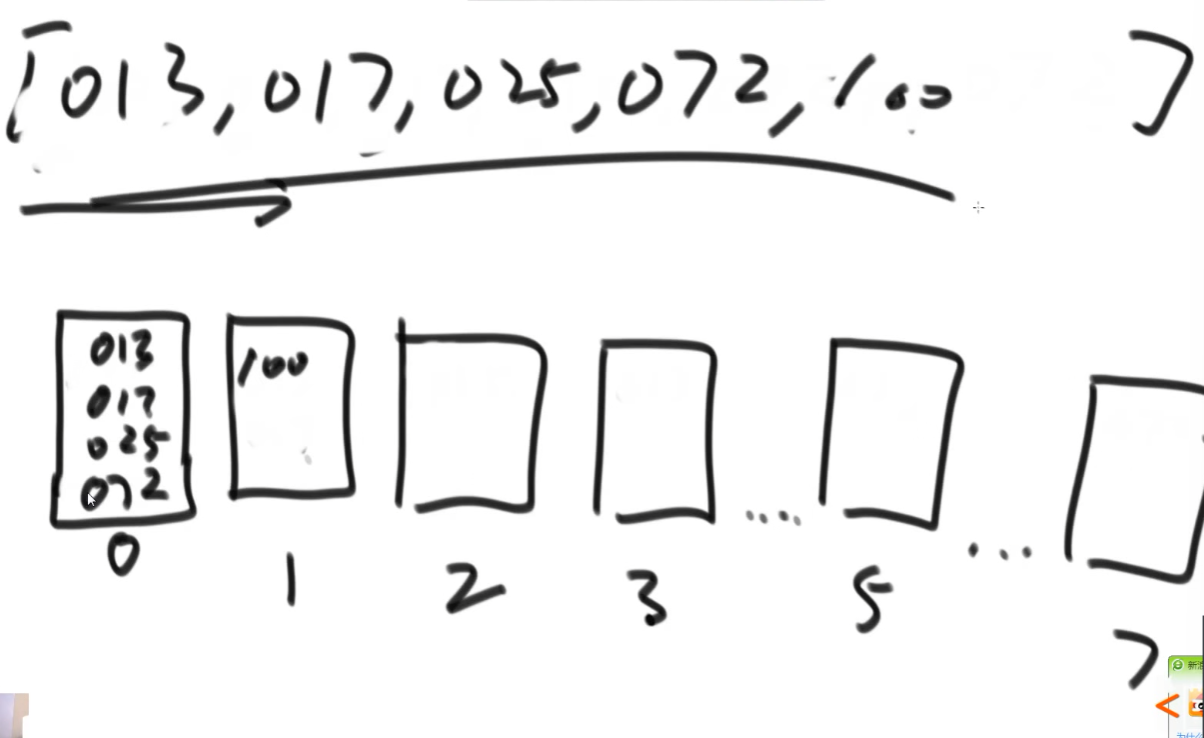 [013, 017, 025, 072, 100 ]
013
017
025
072
100
0 1 2 3 .... 5 ... 7